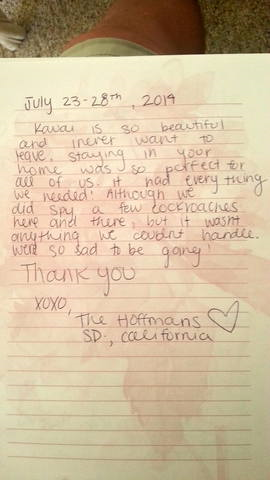 July 23-28th, 2014
Kauai is so beautiful
and i never want to
leave. Staying in your
home was so perfect for
all of us. it had everything
we needed! Although we
did spy a few cockroaches
here and there, but it wasnt
anything we couldnt handle.
were so sad to be going
Thank you
xoxo,
The Hoffmans ♡
SD., california